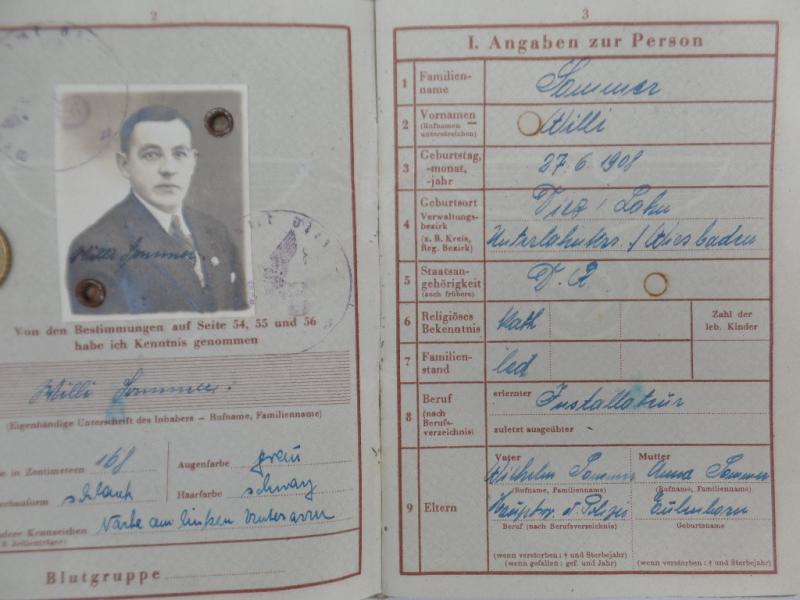 2
Willi Sommer
Von den Bestimmungen auf Seite 54, 55 und 56
habe ich Kenntnis genommen
Willi Sommer.
(Eigenhändige Unterschrift des Inhabers – Rufname, Familienname)
in Zentimetern 168 Augenfarbe grau
schlank Haarfarbe schwarz
Kennzeichen Narbe am linken Unterarm
Blutgruppe
3
I. Angaben zur Person
1 Familien-
name Sommer
2 Vornamen Willi
(Rufnamen
unterstreichen)
3 Geburtstag, 27.6.1908
-monat,
-jahr
4 Geburtsort Diez / Lahn
Verwaltungs-
bezirk
(z. B. Kreis, Unterlahnkrs. / Wiesbaden
Reg. Bezirk)
5 Staatsan- D. R.
gehörigkeit
(auch frühere)
6 Religiöses kath Zahl der
Bekenntnis leb. Kinder
7 Familien- led
stand
8 Beruf erlernter Installateur
(nach
Berufs-
verzeichnis) zuletzt ausgeübter
9 Eltern
Vater Mutter
Wilhelm Sommer Anna Sommer
(Rufname, Familienname) (Rufname, Familienname)
Hauptw. d. Polizei
Beruf (nach Berufsverzeichnis) Geburtsname
(wenn verstorben: † und Sterbejahr) (wenn verstorben: † und Sterbejahr)
(wenn gefallen: gef. und Jahr)